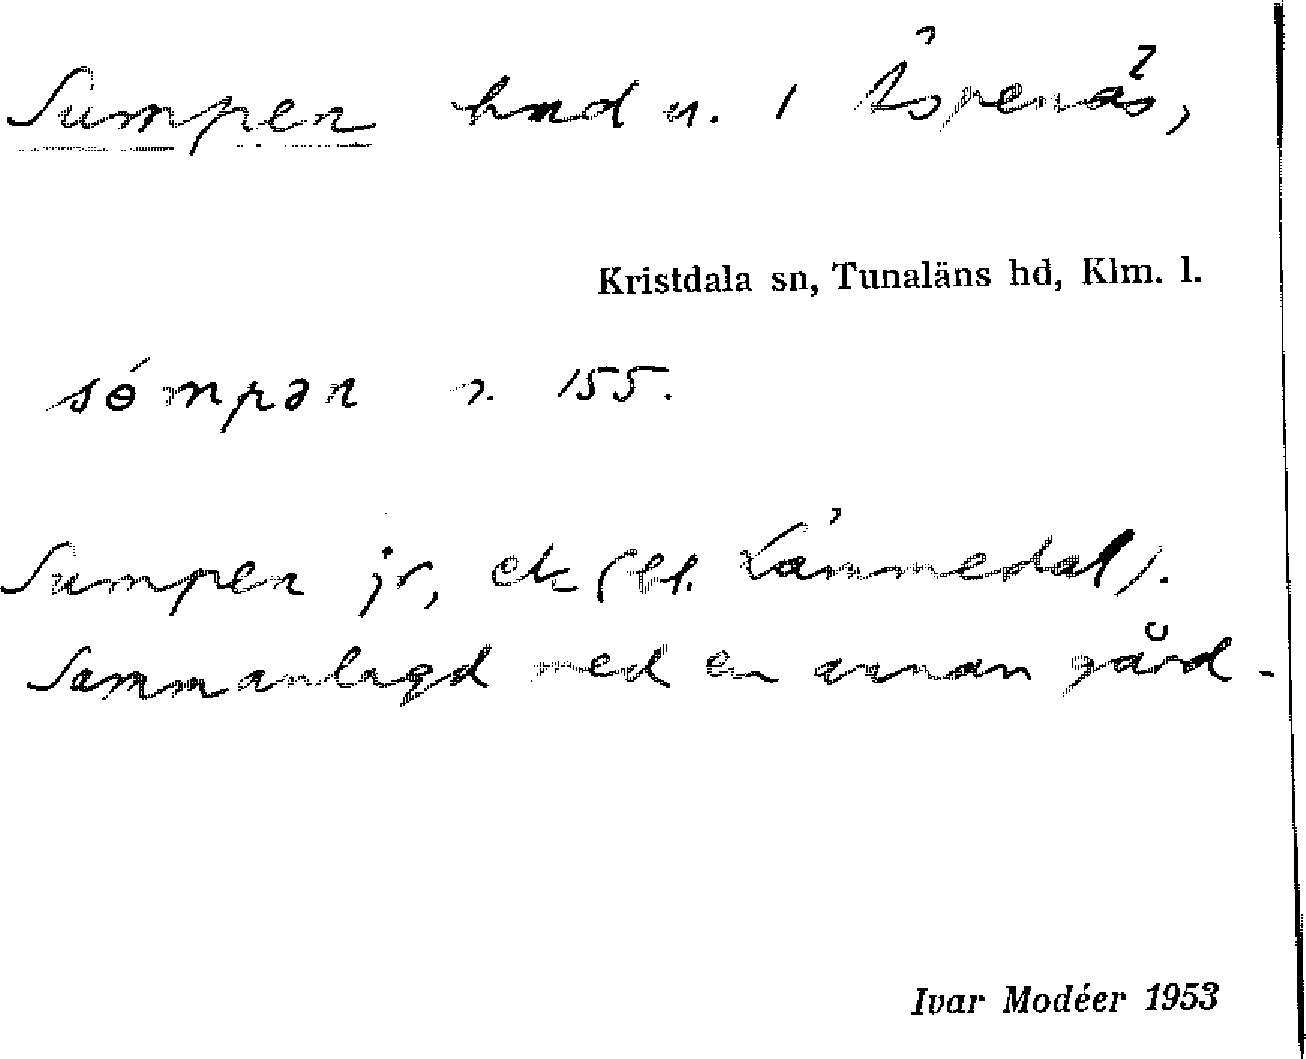 Sumpen hmd n. 1 Äspenäs,
Kristdala sn, Tunaläns hd, Klm. l.
sɵ́mpən n. 155.
Sumpen jr, etc (el. Lammedal).
Sammanlagd med en annan gård.
Ivar Modéer 1953